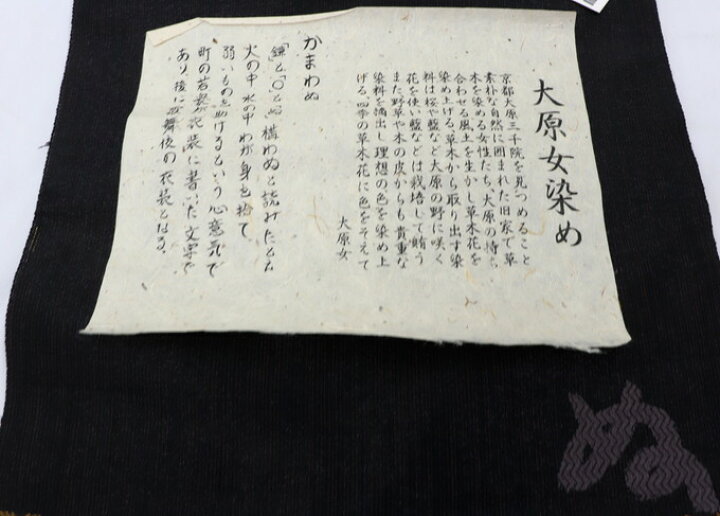 大原女染め
京都大原三千院を見つめること
素朴な自然に囲まれた旧家で草
木を染める女性たち、大原の持ち
合わせる風土を生かし草木花を
染め上げる、草木から取り出す染
料は桜や藍など大原の野に咲く
花を使い藍などは栽培して賄う
また野草や木の皮からも貴重な
染料を摘出し理想の色を染め上
げる、四季の草木花に色をそえて
大原女
かまわぬ
「鎌と「〇とぬ」構わぬと読みたるもち
火の中水の中わが身を捨て
弱いものを助けるという心意気で
町の若衆が衣装に書いた文字で
あり、後に歌舞伎の衣装となる、
ぬ